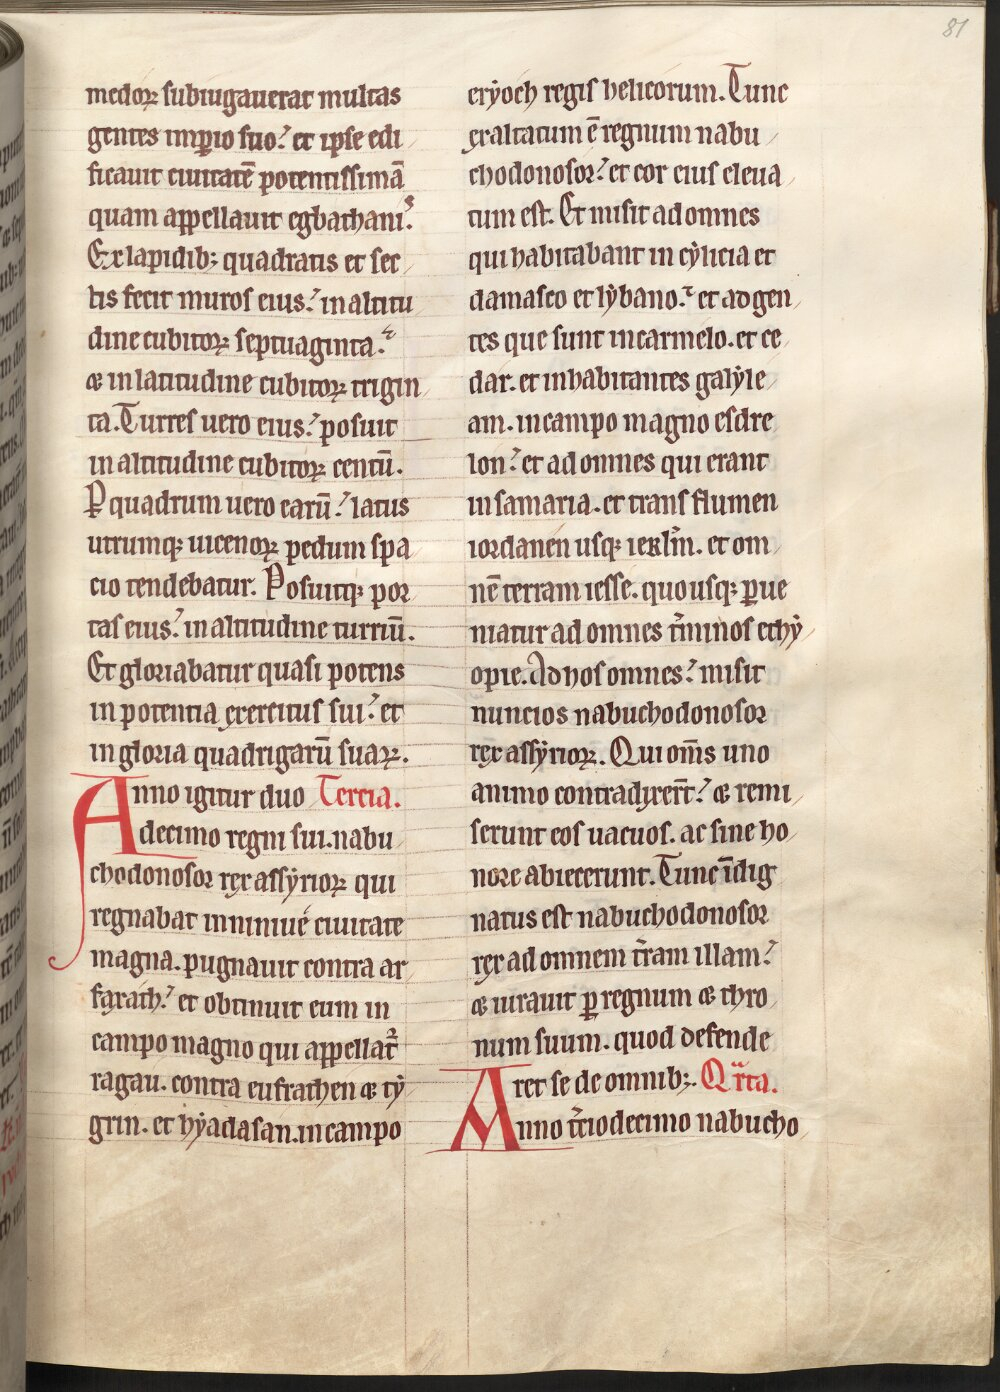 81
medoꝝ subiugauerat multas
gentes imꝑio suo. et ipse edi
ficauit ciuitatē potentissimā
quam appellauit egbathanis.
Ex lapidib; quadratis et sec
tis fecit muros eius. in altitu
dine cubitoꝝ septuaginta.
⁊ in latitudine cubitoꝝ trigin
ta. Turres uero eius. posuit
in altitudine cubitoꝝ centū.
Ꝑ quadrum uero earū. latus
utrumq; uicenoꝝ pedum spa
cio tendebatur. Posuitq; por
tas eius. in altitudine turriū.
Et gloriabatur quasi potens
in potentia exercitus sui. et
in gloria quadrigarū suaꝝ.
Anno igitur duo Tercia.
decimo regni sui. nabu
chodonosor rex assyrioꝝ qui
regnabat in niniue ciuitate
magna. pugnauit contra ar
faxath. et obtinuit eum in
campo magno qui appellat᷑
ragau. contra eufrathen ⁊ ty
grin. et hyadasan. in campo
eryoch regis helicorum. Tunc
exaltatum ē regnum nabu
chodonosor. et cor eius eleua
tum est. Et misit ad omnes
qui habitabant in cylicia et
damasco et lybano. et ad gen
tes que sunt in carmelo. et ce
dar. et inhabitantes galyle
am. in campo magno esdre
lon. et ad omnes qui erant
in samaria. et trans flumen
iordanen usq; ierl̄m. et om
nē terram iesse. quousq; ꝑue
niatur ad omnes t̄minos ethy
opie. Ad hos omnes. misit
nuncios nabuchodonosor
rex assyrioꝝ. Qui om̄s uno
animo contradixer̄t. ⁊ remi
serunt eos uacuos. ac sine ho
nore abiecerunt. Tunc īdig
natus est nabuchodonosor
rex ad omnem t̄ram illam.
⁊ iurauit ꝑ regnum ⁊ thro
num suum. quod defende
ret se de omnib;. Qr̄ta.
Anno t̄ciodecimo nabucho